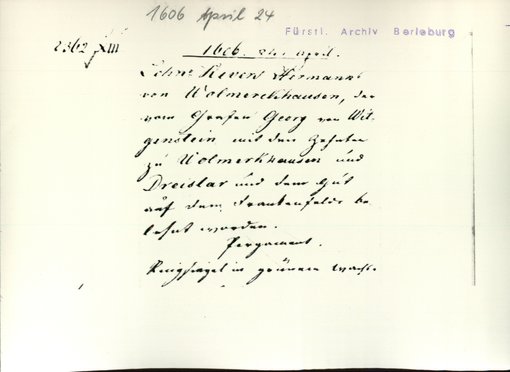 1606 April 24
Fürstl. Archiv Berleburg
2362 XIII
1606. 24. April.
Lehns Revers Hermanns
von Wolmerckhausen, der
vom Grafen Georg von Wit-
genstein mit den Zehnten
zu Wolmerkhausen und
Dreislar und dem Gut
auf dem Frankenfelde be
lehnt worden.
Pergament.
Ringsiegel in grünem Wachs.